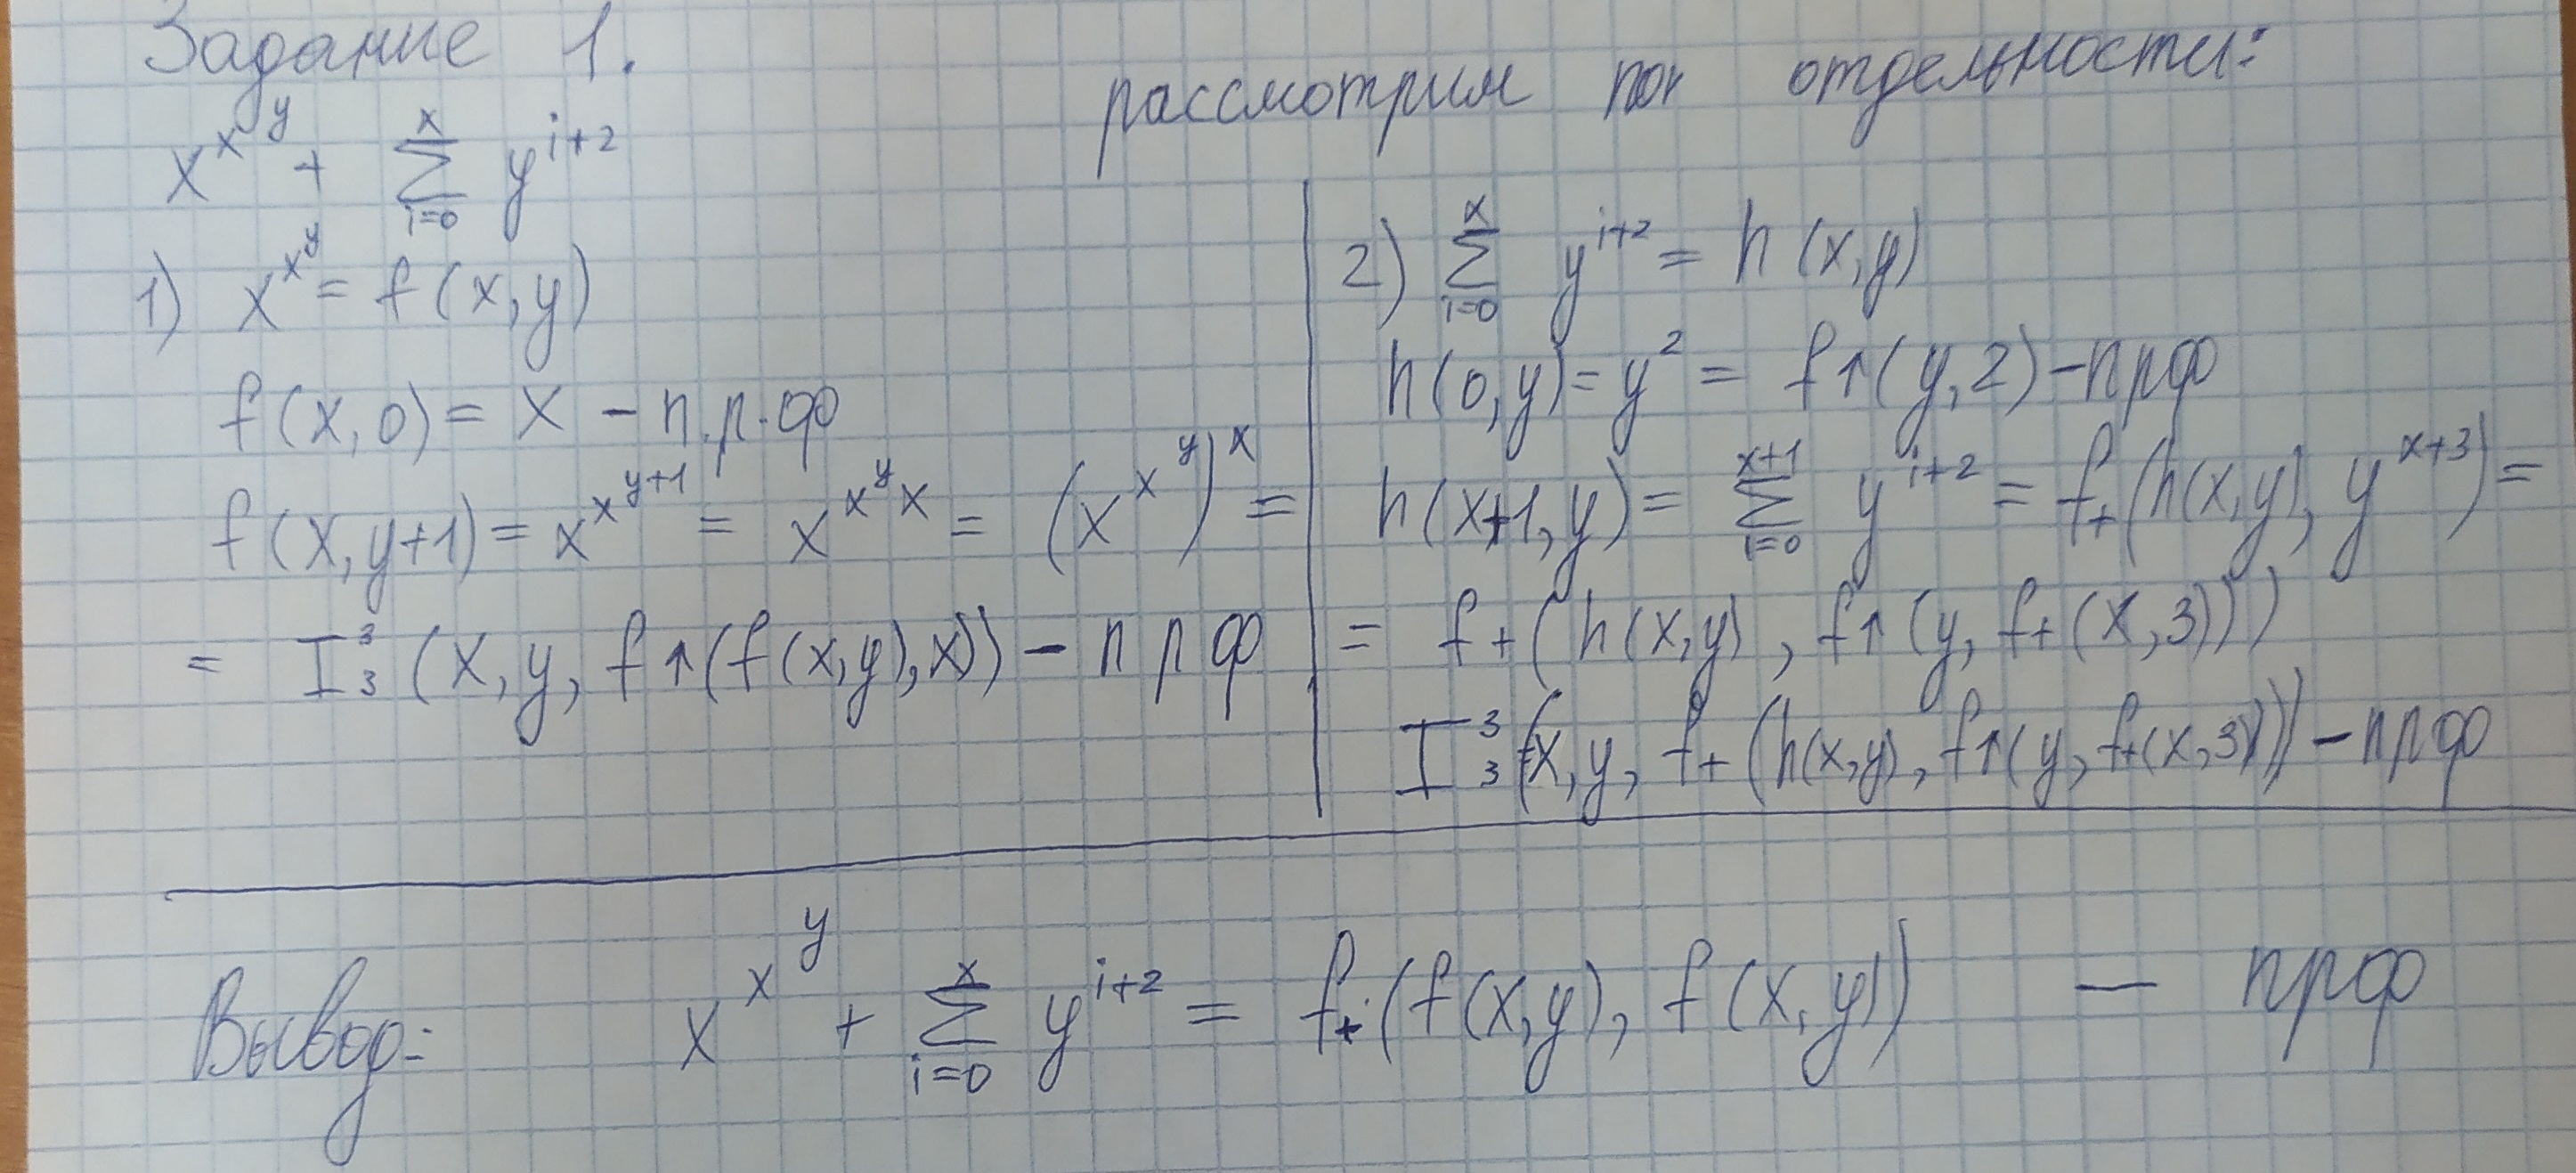 Задание 1.
x^{x^y} + \sum_{i=0}^{x} y^{i+2}
рассмотрим по отдельности:
1) x^{x^y} = f(x,y)
f(x,0) = x – п.р.ф
f(x,y+1) = x^{x^{y+1}} = x^{x^y x} = (x^{x^y})^x =
= I^3_3 (x, y, f↑(f(x,y),x)) – п р ф
2) \sum_{i=0}^{x} y^{i+2} = h(x,y)
h(0,y) = y^2 = f↑(y,2) – прф
h(x+1,y) = \sum_{i=0}^{x+1} y^{i+2} = f_+(h(x,y), y^{x+3}) =
= f+(h(x,y), f↑(y, f+(x,3)))
I^3_3 (x, y, f+(h(x,y), f↑(y, f+(x,3))) – прф
Вывод: x^{x^y} + \sum_{i=0}^{x} y^{i+2} = f_+(f(x,y), f(x,y)) – прф